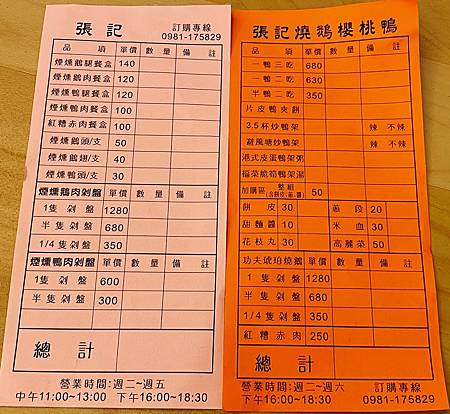 張記
訂購專線
0981-175829
品項 單價 數量 備註
煙燻鵝腿餐盒 140
煙燻鵝肉餐盒 120
煙燻鴨腿餐盒 120
煙燻鴨肉餐盒 100
紅糟赤肉餐盒 100
煙燻鵝頭/支 50
煙燻鵝翅/支 40
煙燻鴨頭/支 30
煙燻鵝肉剁盤 單價 數量 備註
1隻剁盤 1280
半隻剁盤 680
1/4隻剁盤 350
煙燻鴨肉剁盤 單價 數量 備註
1隻剁盤 600
半隻剁盤 300
總計
營業時間:週二~週五
中午11:00~13:00 下午16:00~18:30
張記燒鵝櫻桃鴨
品項 單價 數量 備註
一鴨三吃 680
一鴨二吃 630
半鴨二吃 350
片皮鴨夾餅
3.5杯炒鴨架 辣 不辣
避風塘炒鴨架 辣 不辣
港式皮蛋鴨架粥
福菜脆筍鴨架湯
加購區 整組 50
餅皮 30 蔥段 20
甜麵醬 10 米血 30
花枝丸 30 高麗菜 50
功夫琥珀燒鵝 單價 數量 備註
1隻剁盤 1280
半隻剁盤 680
1/4剁盤 350
紅糟赤肉 250
總計
營業時間:週二~週六 訂購專線
下午16:00~18:30 0981-175829